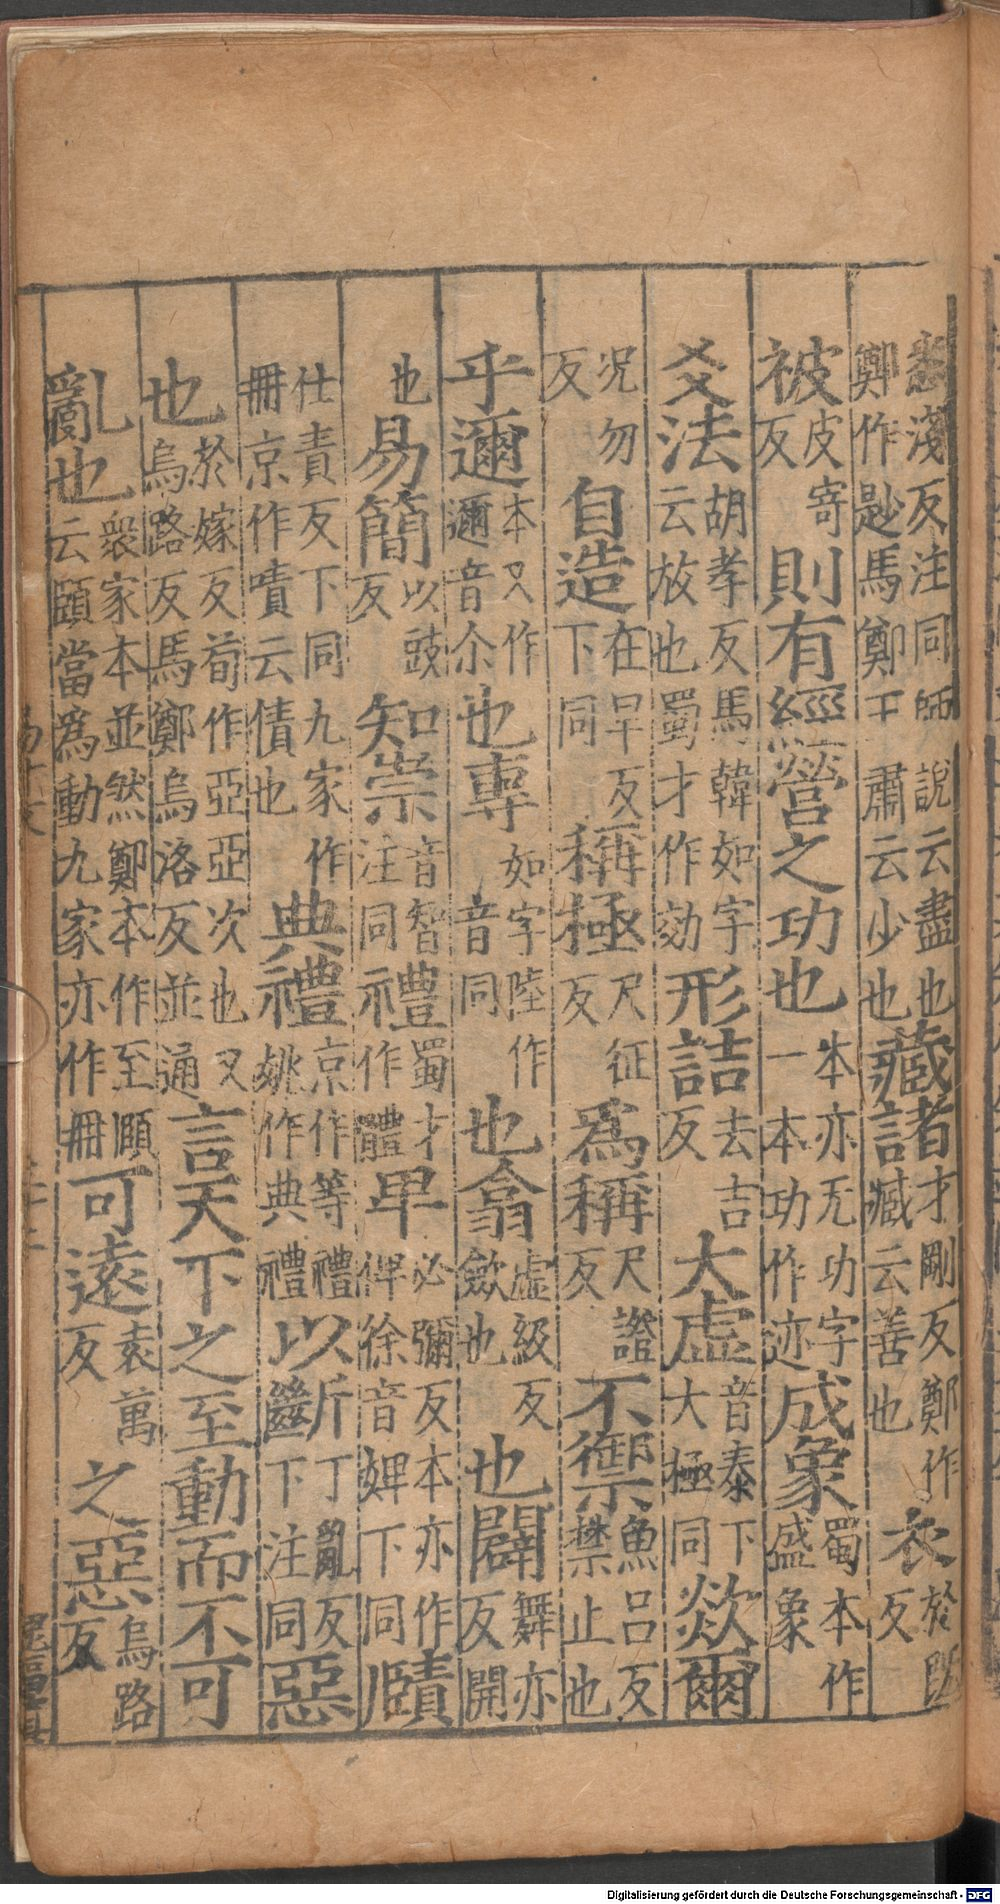 悉淺反注同師說云盡也鄭作尟馬鄭王肅云少也藏諸才剛反鄭作臧云善也衣於既反
被皮寄反則有經營之功也本亦无功字一本功作迹成象蜀本作盛象
爻法胡孝反馬韓如字云放也蜀才作効形詰去吉反大虛音泰下大極同欻爾
況勿反自造在早反下同稱極尺征反爲稱尺證反不禦魚呂反禁止也
乎邇本又作迩音尒也專如字陸作音同也翕虛級反斂也也闢舞亦反開
也易簡以豉反知崇音智注同禮蜀才作體卑必彌反本亦作俾徐音婢下同賾
仕責反下同九家作冊京作嘖云情也典禮京作等禮姚作典禮以斷丁亂反下注同惡
也於嫁反荀作亞亞次也又烏路反馬鄭烏洛反並通言天下之至動而不可
亂也衆家本並然鄭本作至賾云賾當爲動九家亦作冊可遠袁萬反之惡烏路反
Digitalisierung gefördert durch die Deutsche Forschungsgemeinschaft - DFG